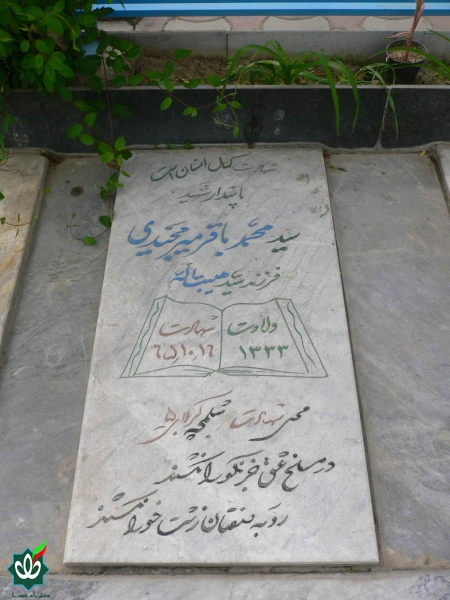 شهادت کمال انسان است
پاسدار شهید
سید محمد باقر میر مجیدی
فرزند سید هیبت الله
ولادت
۱۳۳۳
شهادت
۶۵,۱۰,۱۶
محل شهادت شلمچه کربلای ۵
در مسلخ عشق جز نکو را نکشند
روبه صفتان زشت خو را نکشند